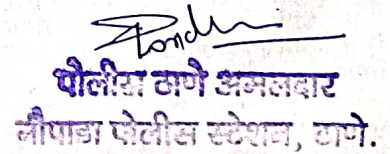 पोलीस ठाणे अमलदार
नौपाडा पोलीस स्टेशन, ठाणे.